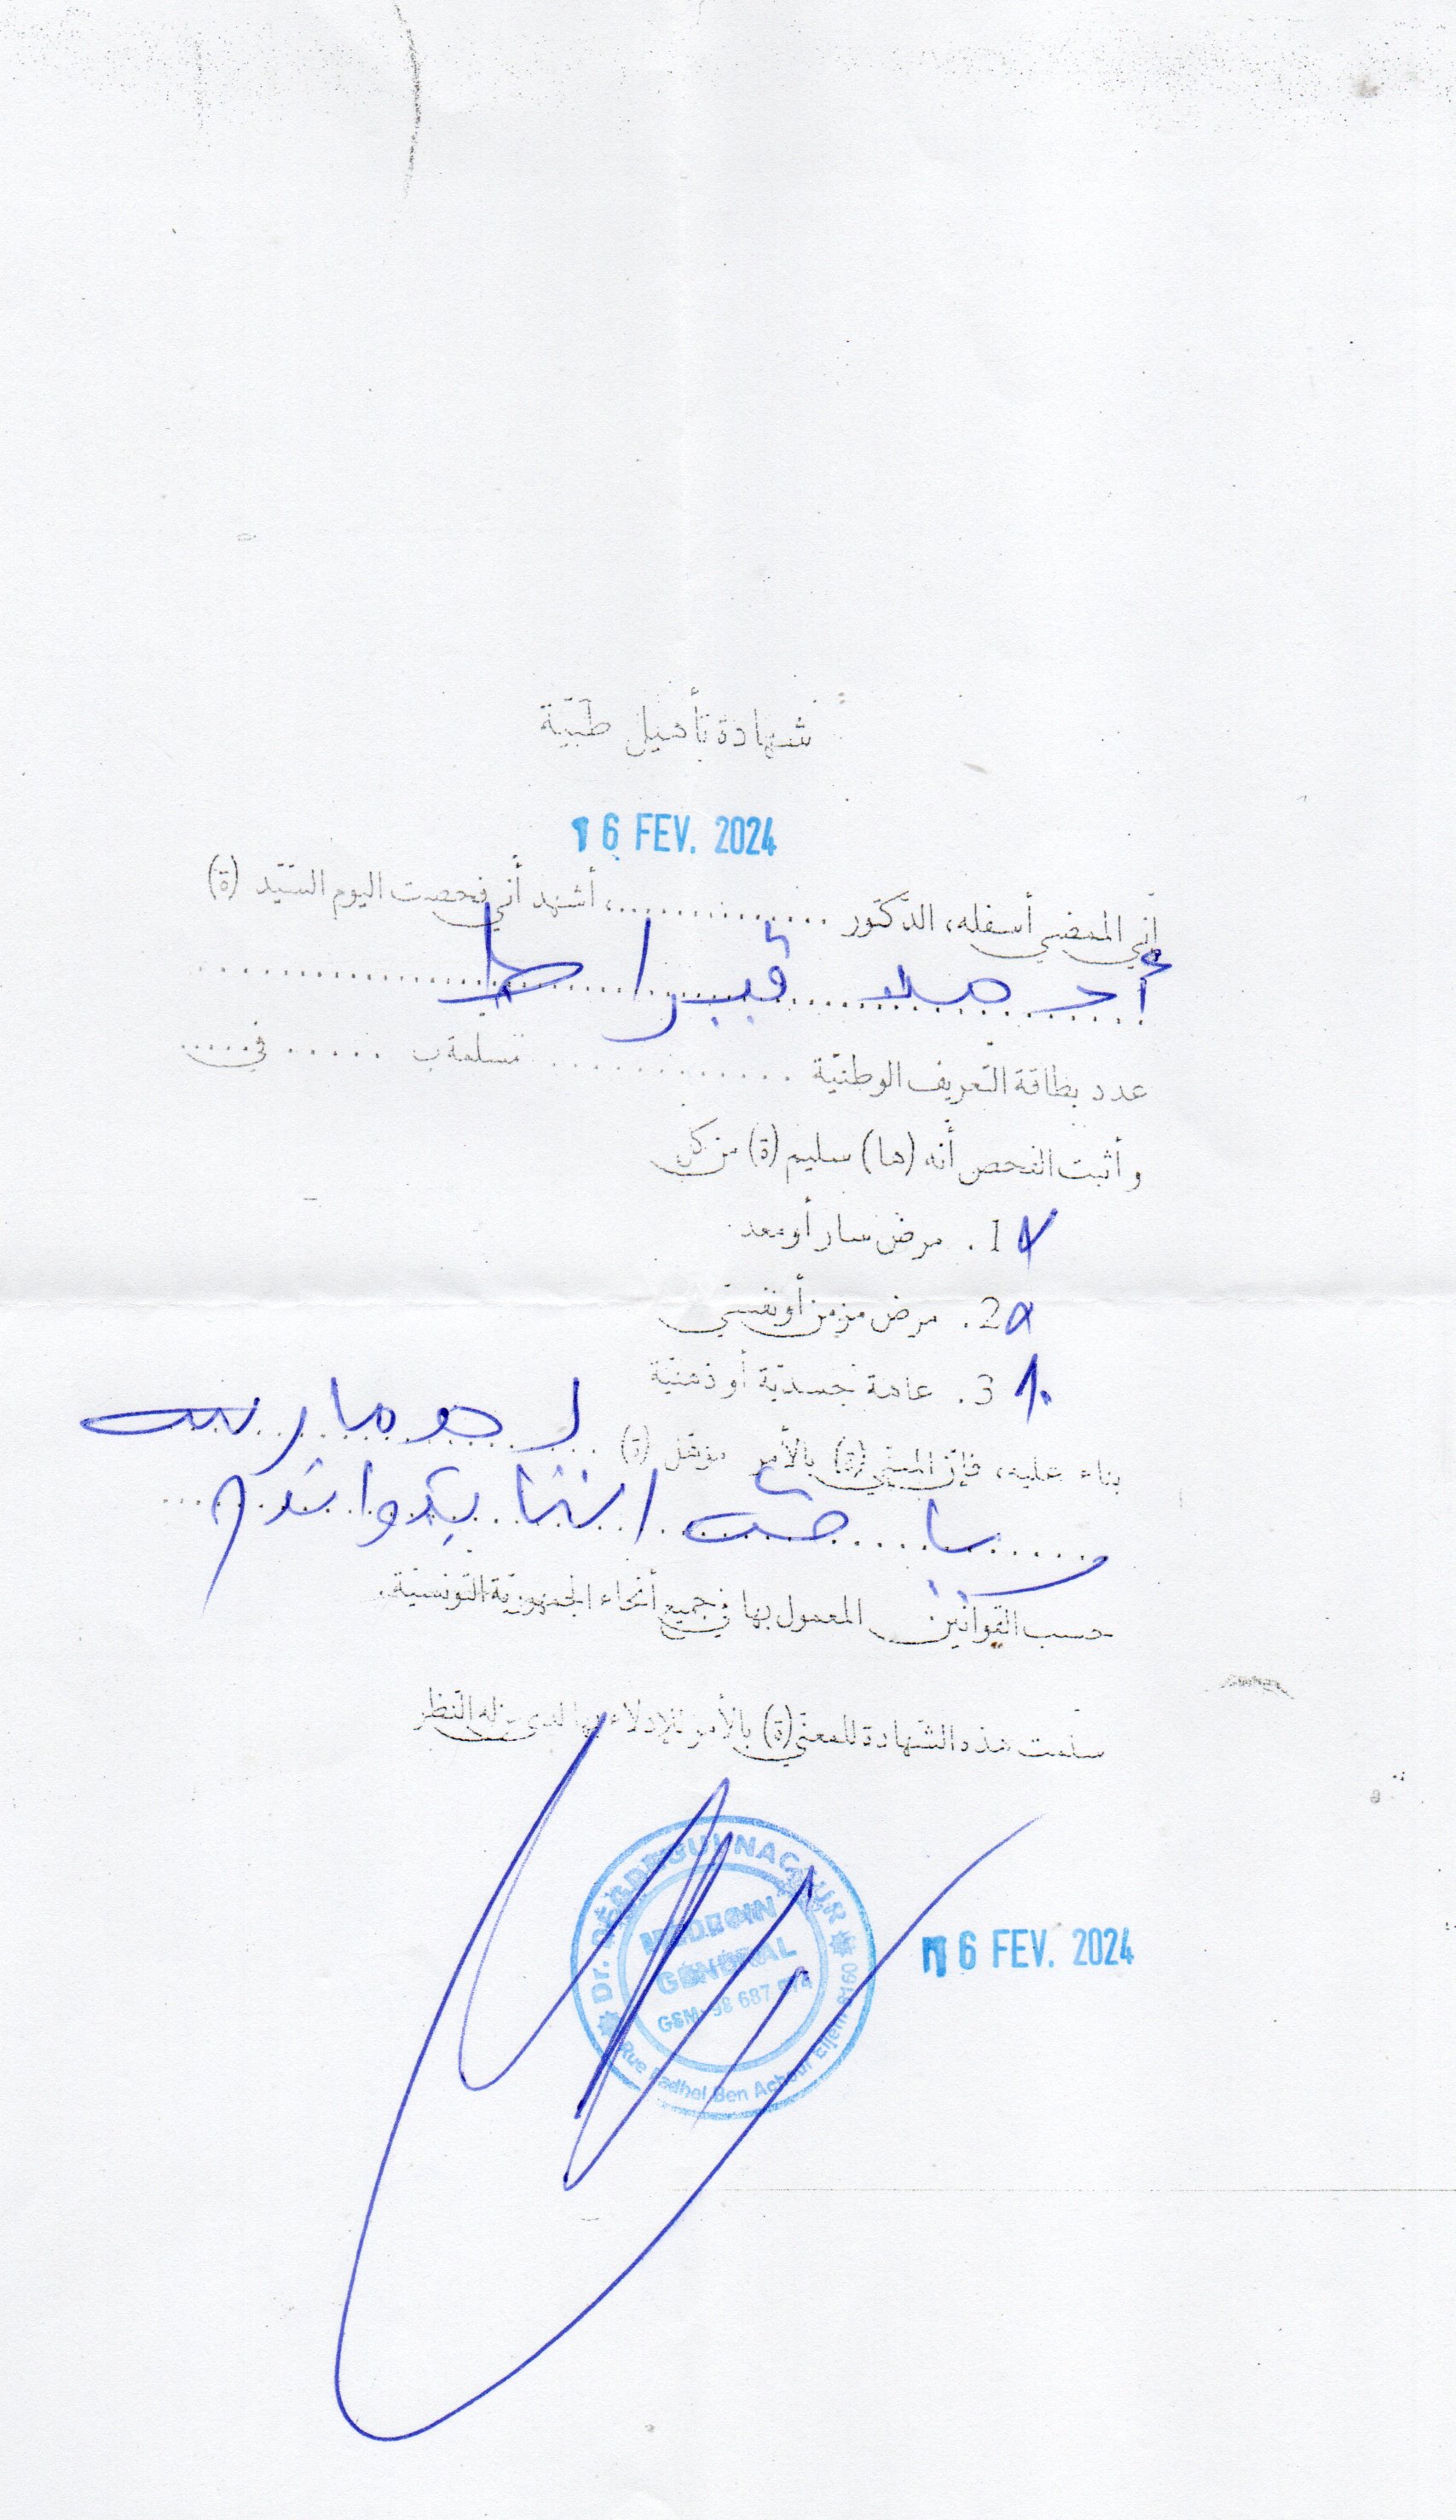 شهادة تأهيل طبّية
16 FEV. 2024
إنّي الممضي أسفله، الدّكتور ................، أشهد أنّي فحصت اليوم السّيّد (ة)
أحمد
عدد بطاقة التّعريف الوطنيّة ............. مسلمة ب ...... في.....
وأثبت الفحص أنّه (ها) سليم (ة) من كل
1. مرض سار أو معد.
2. مرض مزمن أو نفسي
3. عاهة جسديّة أو ذهنيّة
بناء عليه، فإنّ المعني (ة) بالأمر مؤهّل (ة) لـ ممارسة
رياضة التايكواندو
حسب القوانين المعمول بها في جميع أنحاء الجمهوريّة التّونسيّة.
سلمت هذه الشّهادة للمعني (ة) بالأمر للإدلاء بها لدى من له النّظر
Dr. NACEUR
MEDECIN
GENERAL
GSM: 98 687
Rue Fadhel Ben Achour Eljem 5160
16 FEV. 2024